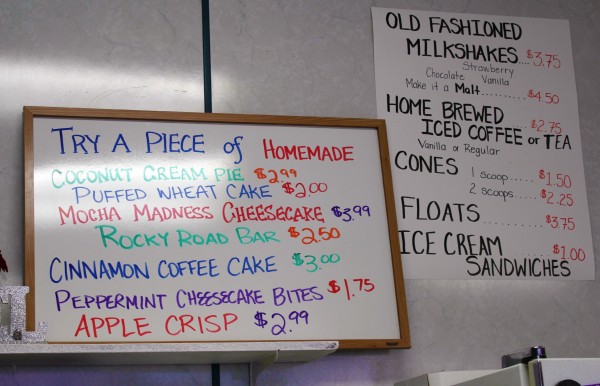 TRY A PIECE of HOMEMADE
COCONUT CREAM PIE $2.99
PUFFED WHEAT CAKE $2.00
MOCHA MADNESS CHEESECAKE $3.99
ROCKY ROAD BAR $2.50
CINNAMON COFFEE CAKE $3.00
PEPPERMINT CHEESECAKE BITES $1.75
APPLE CRISP $2.99
OLD FASHIONED
MILKSHAKES.... $3.75
Strawberry
Chocolate Vanilla
Make it a Malt.......... $4.50
HOME BREWED $2.75
ICED COFFEE or TEA
Vanilla or Regular
CONES 1 scoop...... $1.50
2 scoops..... $2.25
FLOATS ............ $3.75
ICE CREAM ........ $1.00
SANDWICHES